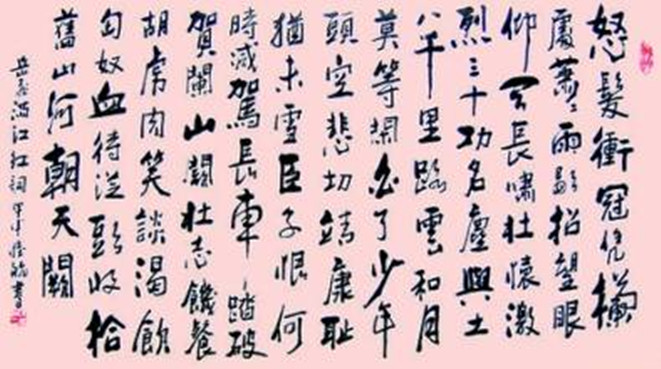 怒髮衝冠凭欄
處蕭々雨歇抬望眼
仰天長嘯壯懷激
烈三十功名塵與土
八千里路雲和月
莫等閑白了少年
頭空悲切靖康恥
猶未雪臣子恨何
時滅駕長車踏破
賀蘭山闕壯志饑餐
胡虜肉笑談渴飲
匈奴血待從頭收拾
舊山河朝天闕
岳飛滿江紅詞甲申書